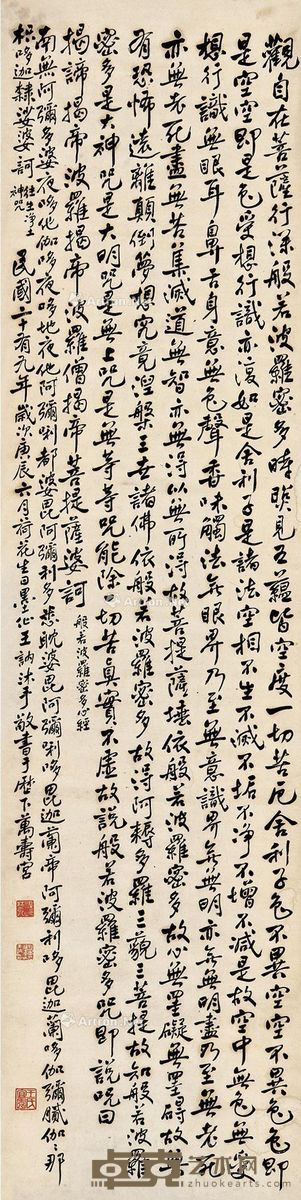 觀自在菩薩行深般若波羅蜜多時照見五蘊皆空度一切苦厄舍利子色不異空空不異色色即
是空空即是色受想行識亦復如是舍利子是諸法空相不生不滅不垢不淨不增不減是故空中無色無受
想行識無眼耳鼻舌身意無色聲香味觸法無眼界乃至無意識界無無明亦無無明盡乃至無老死
亦無老死盡無苦集滅道無智亦無得以無所得故菩提薩埵依般若波羅蜜多故心無罣礙無罣礙故無
有恐怖遠離顛倒夢想究竟涅槃三世諸佛依般若波羅蜜多故得阿耨多羅三藐三菩提故知般若波羅
蜜多是大神咒是大明咒是無上咒是無等等咒能除一切苦真實不虛故說般若波羅蜜多咒即說咒曰
揭諦揭帝波羅揭帝波羅僧揭帝菩提薩婆訶 般若波羅蜜多心經
南無阿彌多婆夜哆他伽哆夜哆地夜他阿彌唎都婆毘阿彌利哆悉耽婆毘阿彌唎哆毘迦蘭帝阿彌利哆毘迦蘭哆伽彌膩伽伽那
枳哆迦隸娑婆訶 往生淨土神咒 民國二十有九年歲次庚辰六月荷花生日墨仙王訥沐手敬書于歷下萬壽宮
Artron.Net
卓克艺术网